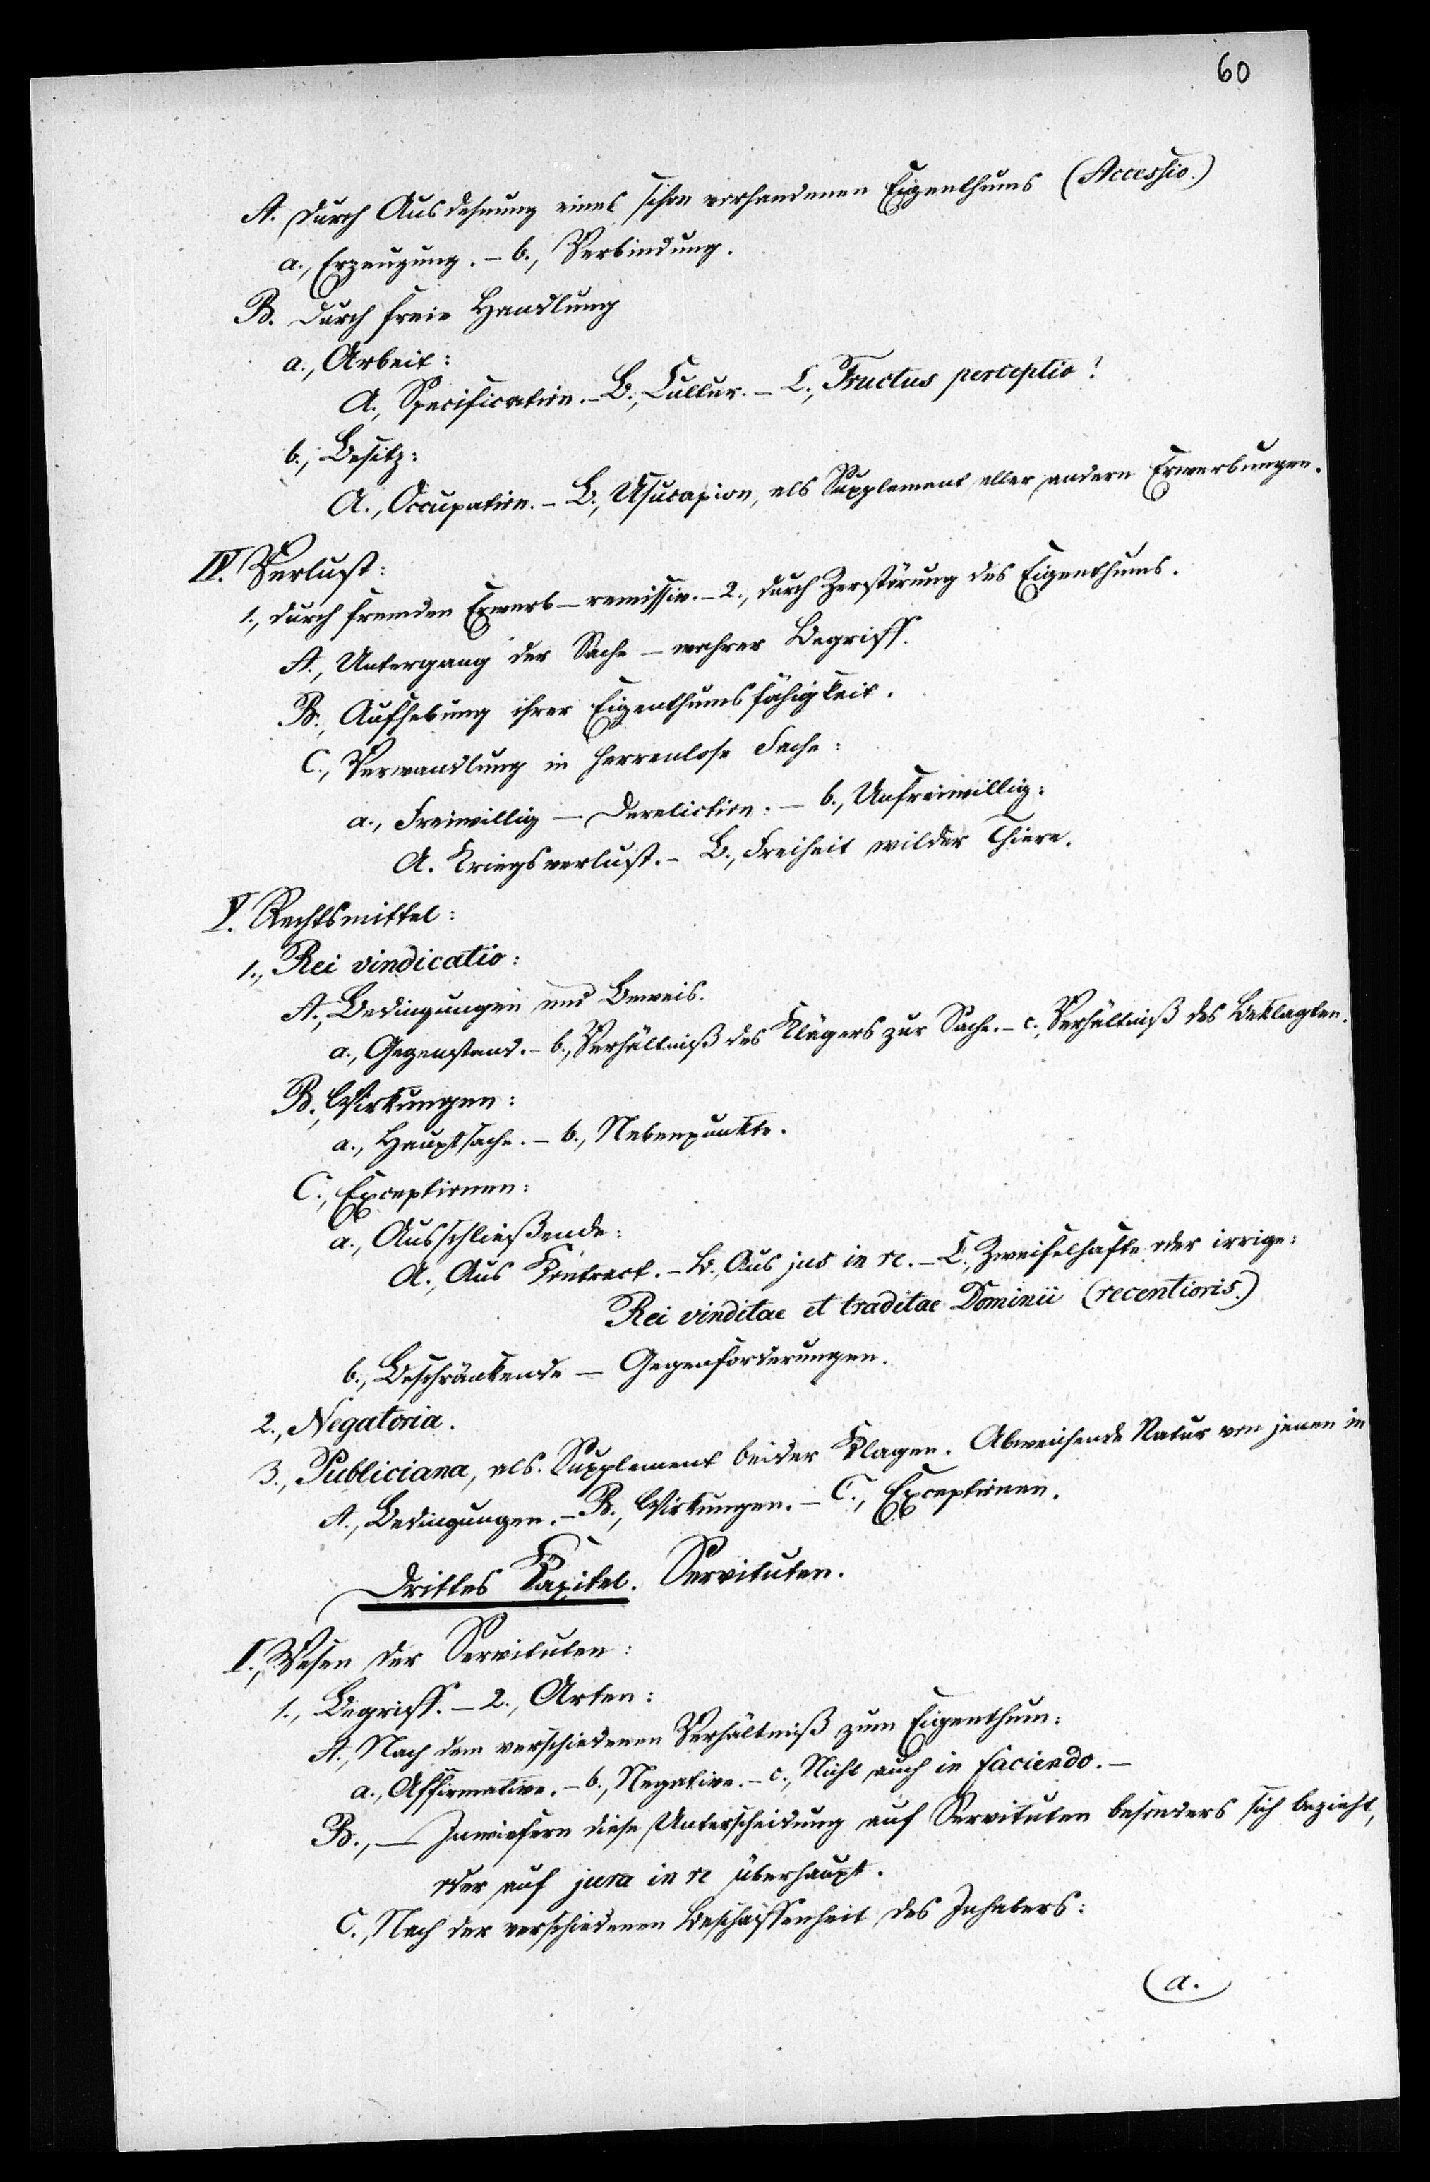 60
A. durch Ausdehnung eines schon vorhandenen Eigenthums (Accessio.)
a., Erzeugung. – b., Verbindung.
B. durch freie Handlung
a., Arbeit:
A., Specification. – B., Cultur. – C., Fructus perceptio!
b., Besitz:
A., Occupation. – B., Usucapion, als Supplement aller andern Erwerbungen.
IV. Verlust:
1., durch fremden Erwerb – remissiv. – 2., durch Zerstörung des Eigenthums.
A., Untergang der Sache – wahrer Begriff.
B., Aufhebung ihrer Eigenthumsfähigkeit.
C., Verwandlung in herrenlose Sache:
a., Freiwillig – Dereliction. – b., Unfreiwillig:
A. Kriegsverlust. – B., Freiheit wilder Thiere.
V. Rechtsmittel:
1., Rei vindicatio:
A., Bedingungen und Beweis.
a., Gegenstand. – b., Verhältniß des Klägers zur Sache. – c., Verhältniß des Beklagten.
B., Wirkungen:
a., Hauptsache. – b., Nebenpunkte.
C., Exceptionen:
a., Ausschließende:
A., Aus Kontract. – B., Aus jus in re. – C., Zweifelhafte oder irrige:
Rei vinditae et traditae Dominii (recentioris.)
b., Beschränkende – Gegenforderungen.
2., Negatoria.
3., Publiciana, als Supplement beider Klagen. Abweichende Natur von jenen in
A., Bedingungen. – B., Wirkungen. – C., Exceptionen.
Drittes Kapitel. Servituten.
I., Wesen der Servituten:
1., Begriff. – 2., Arten:
A., Nach dem verschiedenen Verhältniß zum Eigenthum:
a., Affirmative. – b., Negative. – c., Nicht auch in faciendo. –
B., – Inwiefern diese Unterscheidung auf Servituten besonders sich bezieht,
oder auf jura in re überhaupt.
C., Nach der verschiedenen Beschaffenheit des Inhabers:
a.